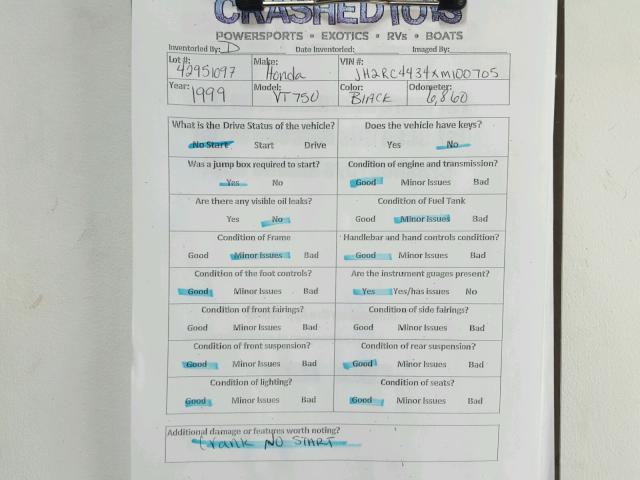 CRASHEDTOYS
POWERSPORTS • EXOTICS • RVs • BOATS
Inventoried By: D Date Inventoried: Imaged By:
Lot #: 42951097 Make: Honda VIN #: JH2RC4434XM100705
Year: 1999 Model: VT750 Color: Black Odometer: 6,860
What is the Drive Status of the vehicle? Does the vehicle have keys?
No Start Start Drive Yes No
Was a jump box required to start? Condition of engine and transmission?
Yes No Good Minor Issues Bad
Are there any visible oil leaks? Condition of Fuel Tank
Yes No Good Minor Issues Bad
Condition of Frame Handlebar and hand controls condition?
Good Minor Issues Bad Good Minor Issues Bad
Condition of the foot controls? Are the instrument guages present?
Good Minor Issues Bad Yes Yes/has issues No
Condition of front fairings? Condition of side fairings?
Good Minor Issues Bad Good Minor Issues Bad
Condition of front suspension? Condition of rear suspension?
Good Minor Issues Bad Good Minor Issues Bad
Condition of lighting? Condition of seats?
Good Minor Issues Bad Good Minor Issues Bad
Additional damage or features worth noting?
Crank NO START